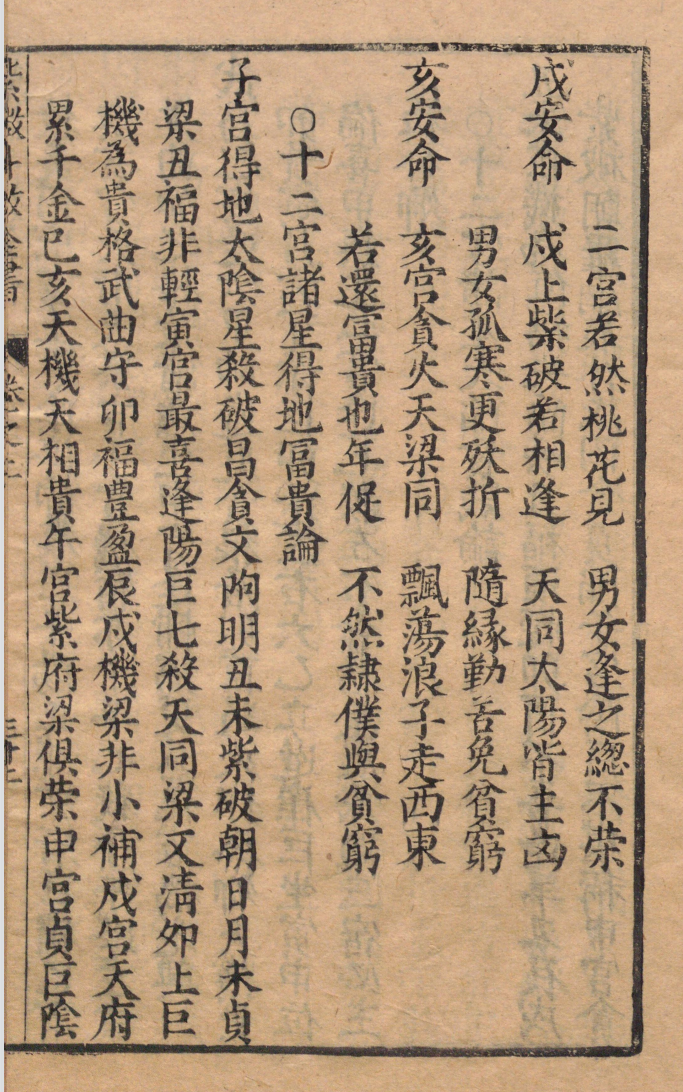 二宫若然桃花見　男女逢之緫不荣
戌安命　戍上柴破若相逢　天同太陽皆主凶
男女孤寒更殀折　隨縁勤善免貧窮
亥安命　亥宫貪火天梁同　飄蕩浪子走西東
若還富貴也年促　不然隸僕與貧窮
○十二宫諸星得地冨貴論
子宫得地太陰星殺破昌貪文昫明丑未紫破朝日月未貞
梁丑福非輕寅宫最喜逢陽巨七殺天同梁又清夘上巨
機為貴格武曲守卯福豊盈辰戍機梁非小補戍宫天府
累千金巳亥天機天相貴午宫紫府梁俱荣申宫貞巨陰
紫微斗数全書　卷之二　三十二